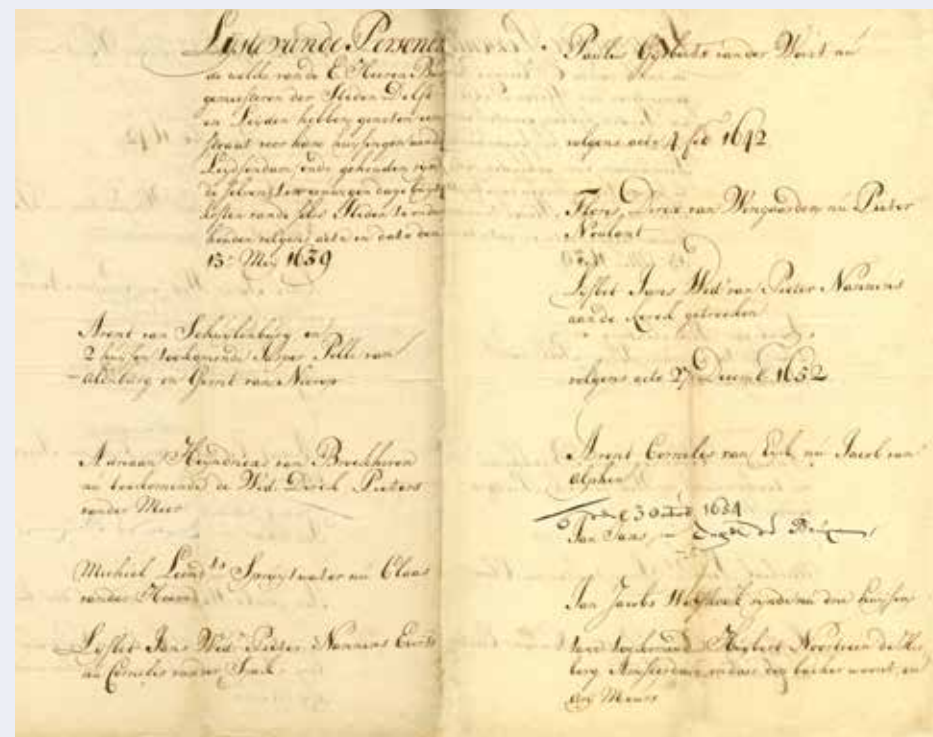 Lyste vande Personen
de welke vande E. Heeren Bur
gemeesteren der Steden Delft
en Leyden hebben genoten een
straat voor hare huysingen aande
Leydsendam, ende gehouden syn
de selve t'allen dage buyten
kosten vande selve Steden te onder
houden volgens acte in dato den
13e. Mey 1639
Arent van Schuylenburg en
2 huysen toekomende Jasper Pelle van
Oldenburg en Gerrit van Nierop
Adriaan Heyndricx van Broekhoven
nu toekomende de Wed. Dirck Pieters
vander Meer
Michiel Leendts Spruytwater nu Claas
vander Hoeve
Lysbet Jans Wed. Pieter Nannens
nu Cornelis vander Speck
Paulus Gysberts vander Worst nu
volgens acte 4 feb 1642
Floris Dircx van Wingaarden nu Pieter
Noulant
Lysbet Jans Wed. van Pieter Nannens
aande kerck getrocken
volgens acte 27 Decemb. 1652
Arent Cornelis van Eyk nu Jacob van
Alphen
30 1684
Jan Jans, nu
Jan Jacobs synde nu drie huysen
toekomende Huybert Noortveen de Her
berg Amsterdam, daer den backer woont, en
Ary Meurs